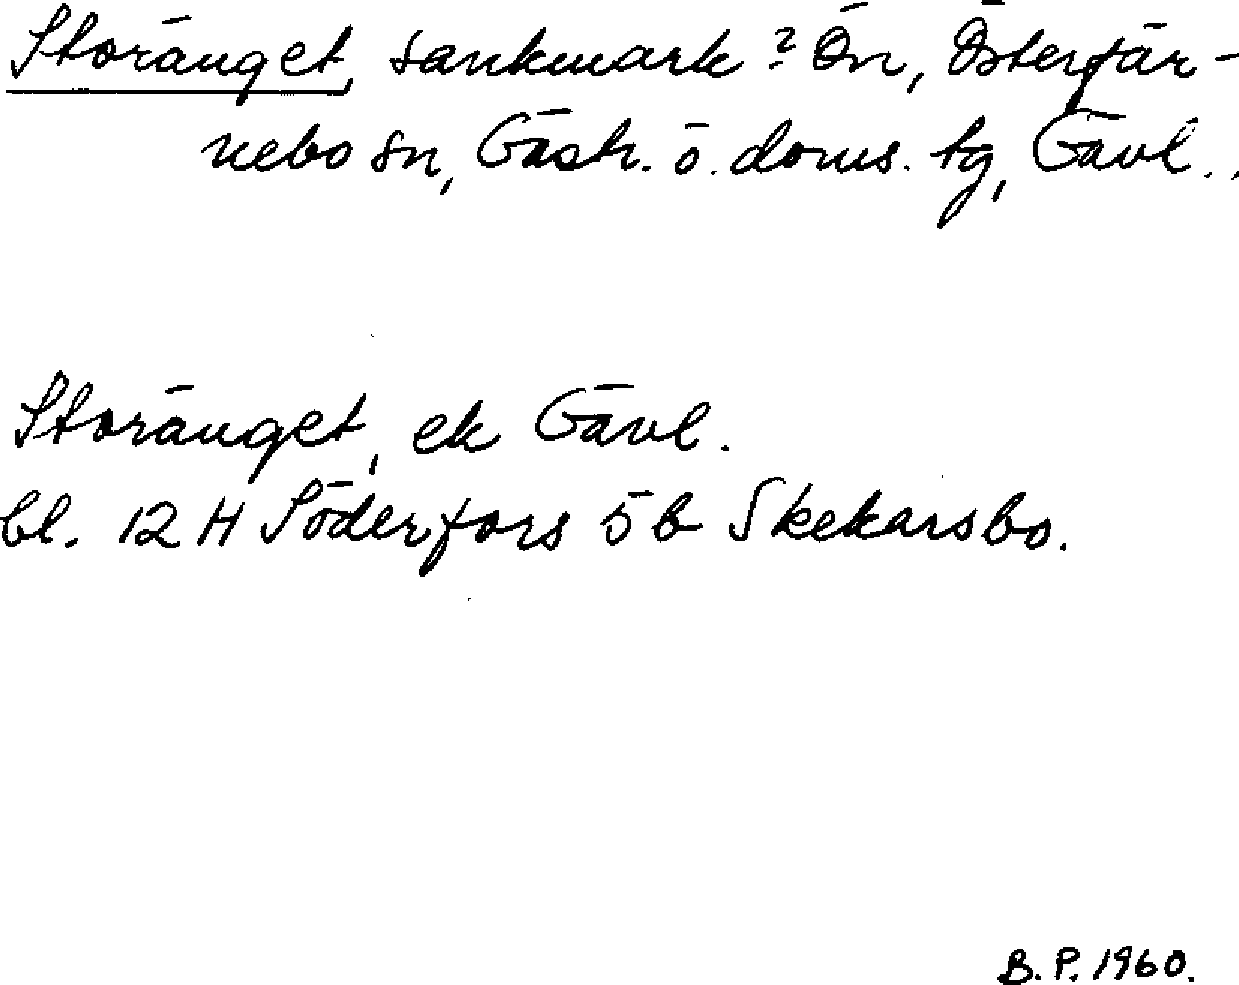 Storänget, sankmark? Ön, Österfär-
nebo sn, Gästr. ö. doms. tg, Gävl..
Storänget, ek Gävl.
bl. 12 H Söderfors 5 b Skekarsbo.
B.P. 1960.